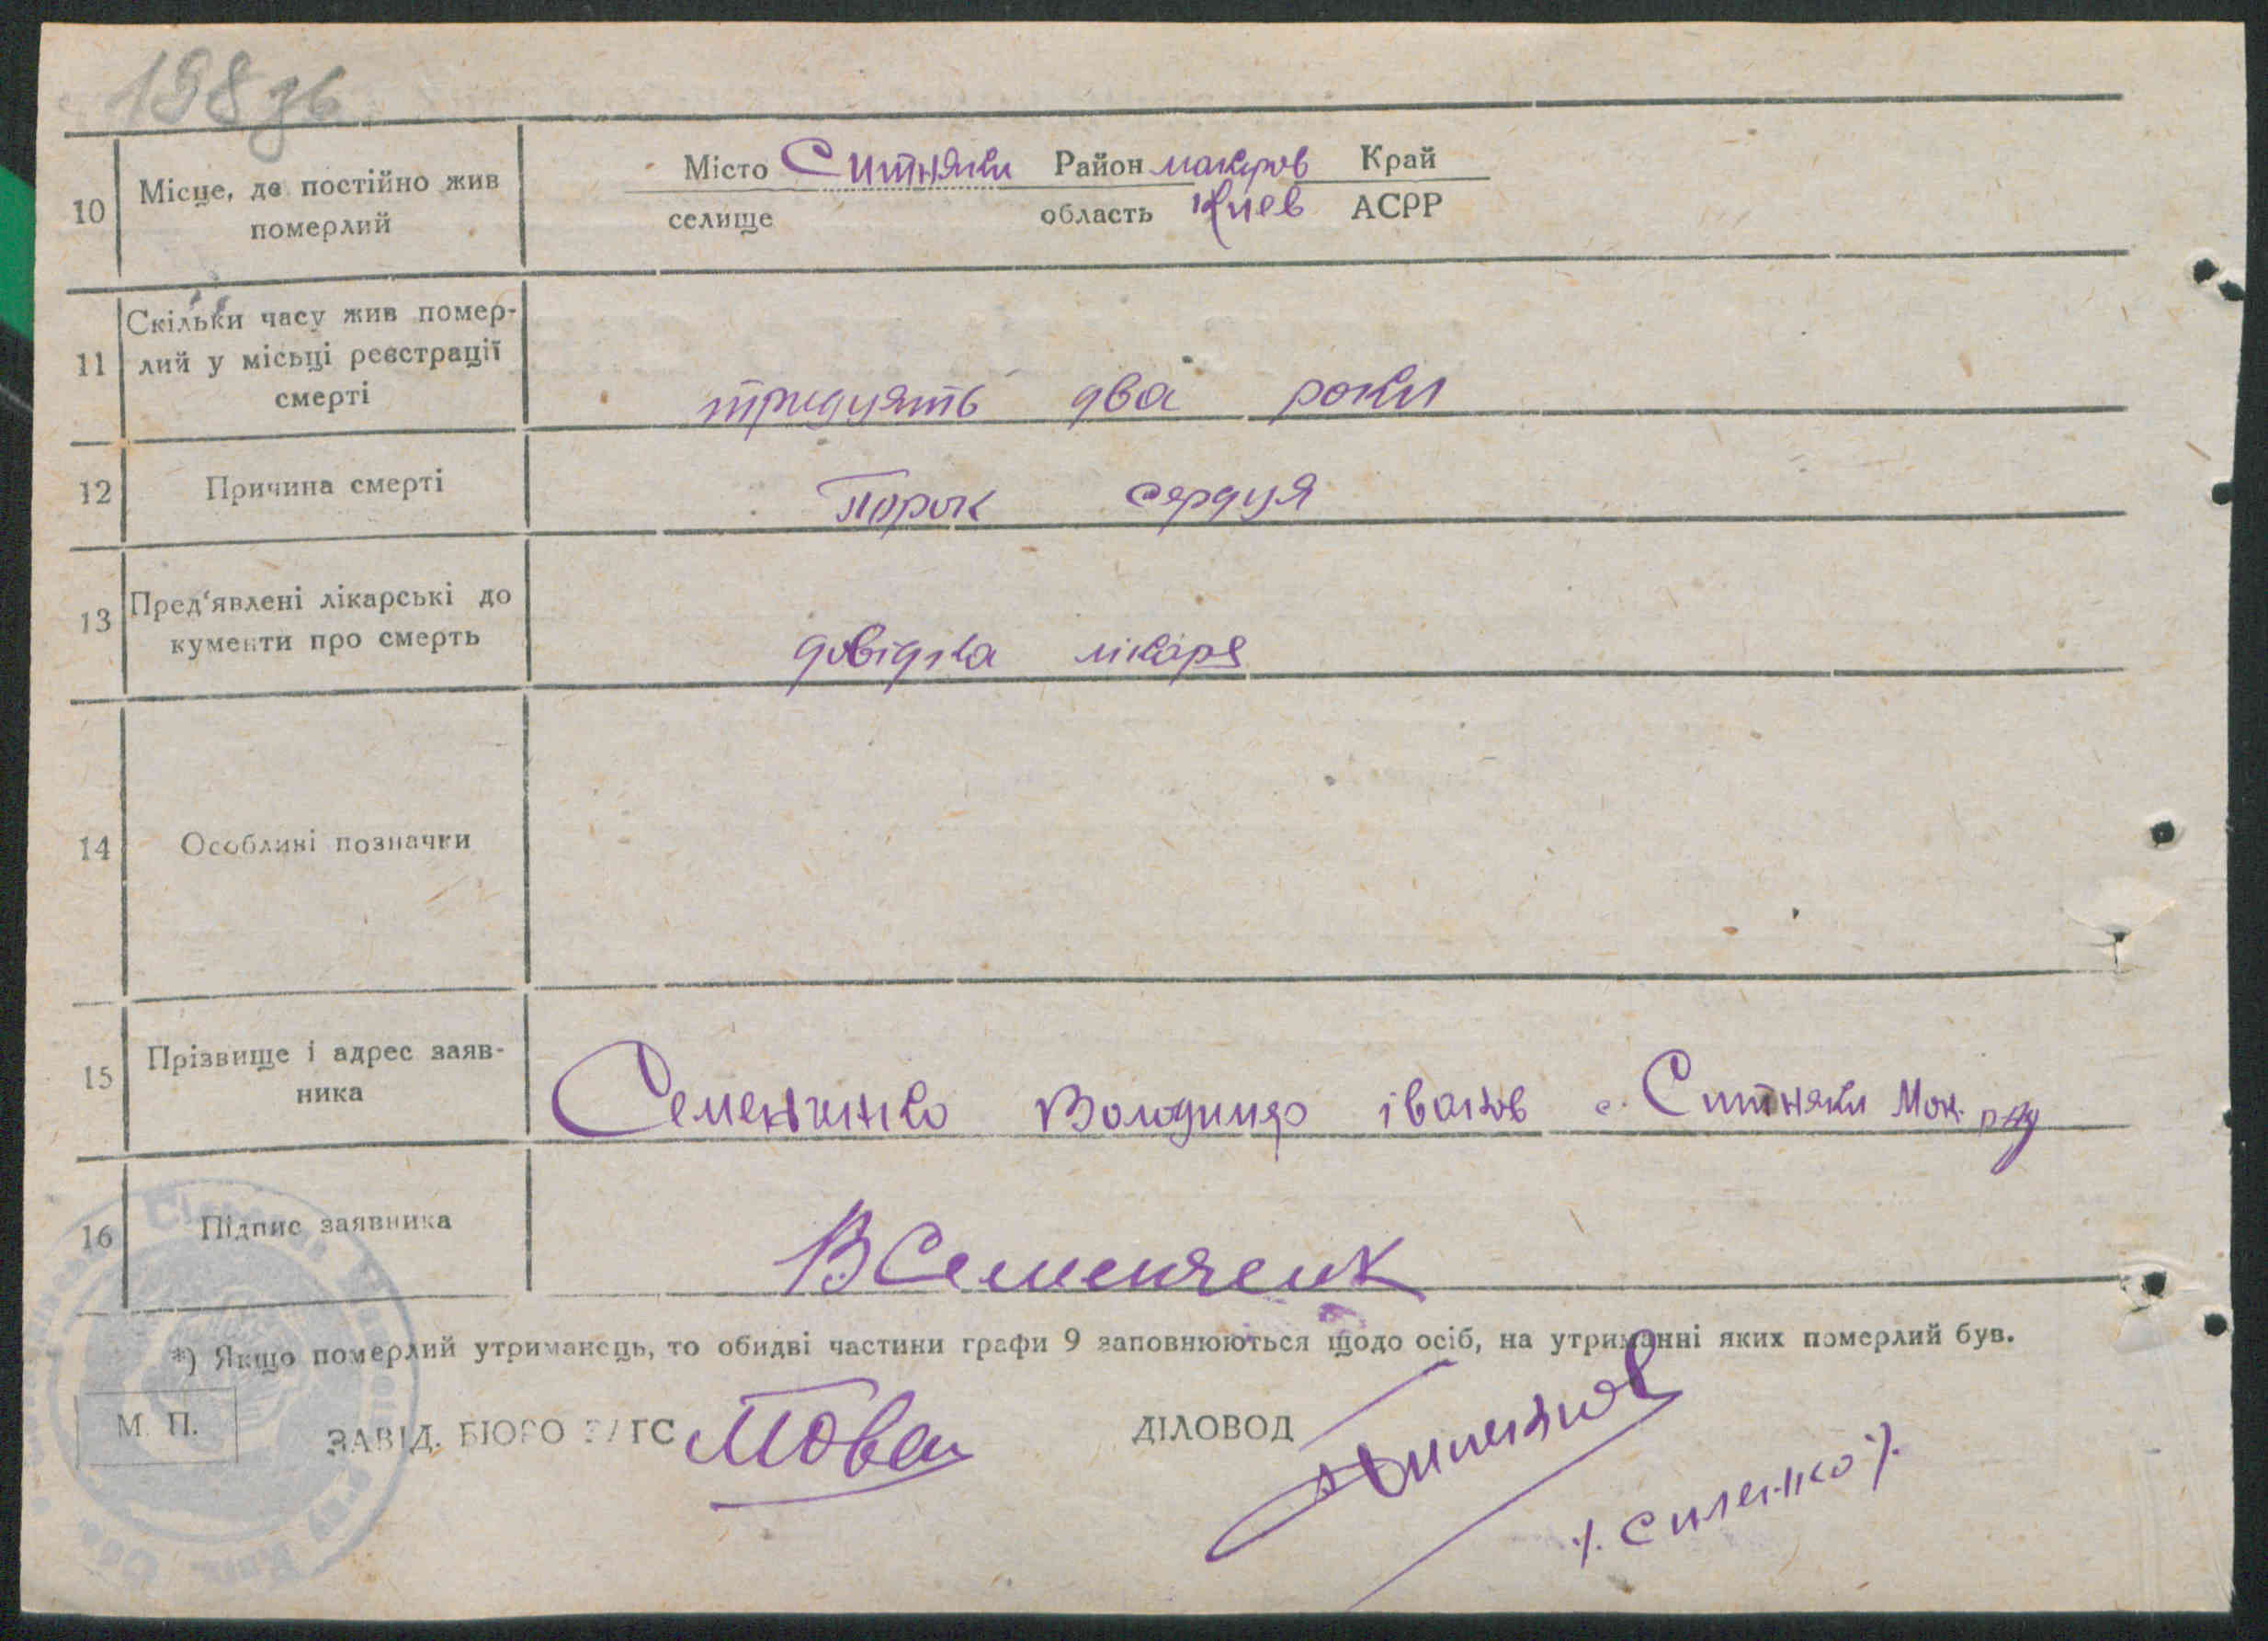 198зв
10 Місце, де постійно жив померлий
Місто Ситняки Район макаров Край
селище область Киев АСРР
11 Скільки часу жив помер-
лий у місьці реєстрації
смерті
тридцять два роки
12 Причина смерті Порок сердця
13 Пред'явлені лікарські до
кументи про смерть
довідка лікаря
14 Особливі позначки
15 Прізвище і адрес заяв-
ника
Семенченко Володимир іванов с. Ситняки Мак. р-ну
16 Підпис заявника ВСеменченк
*) Якщо померлий утриманець, то обидві частини графи 9 заповнюються щодо осіб, на утриманні яких померлий був.
М. П. ЗАВІД. БЮРО ЗАГС ДІЛОВОД
/. Силенко /.